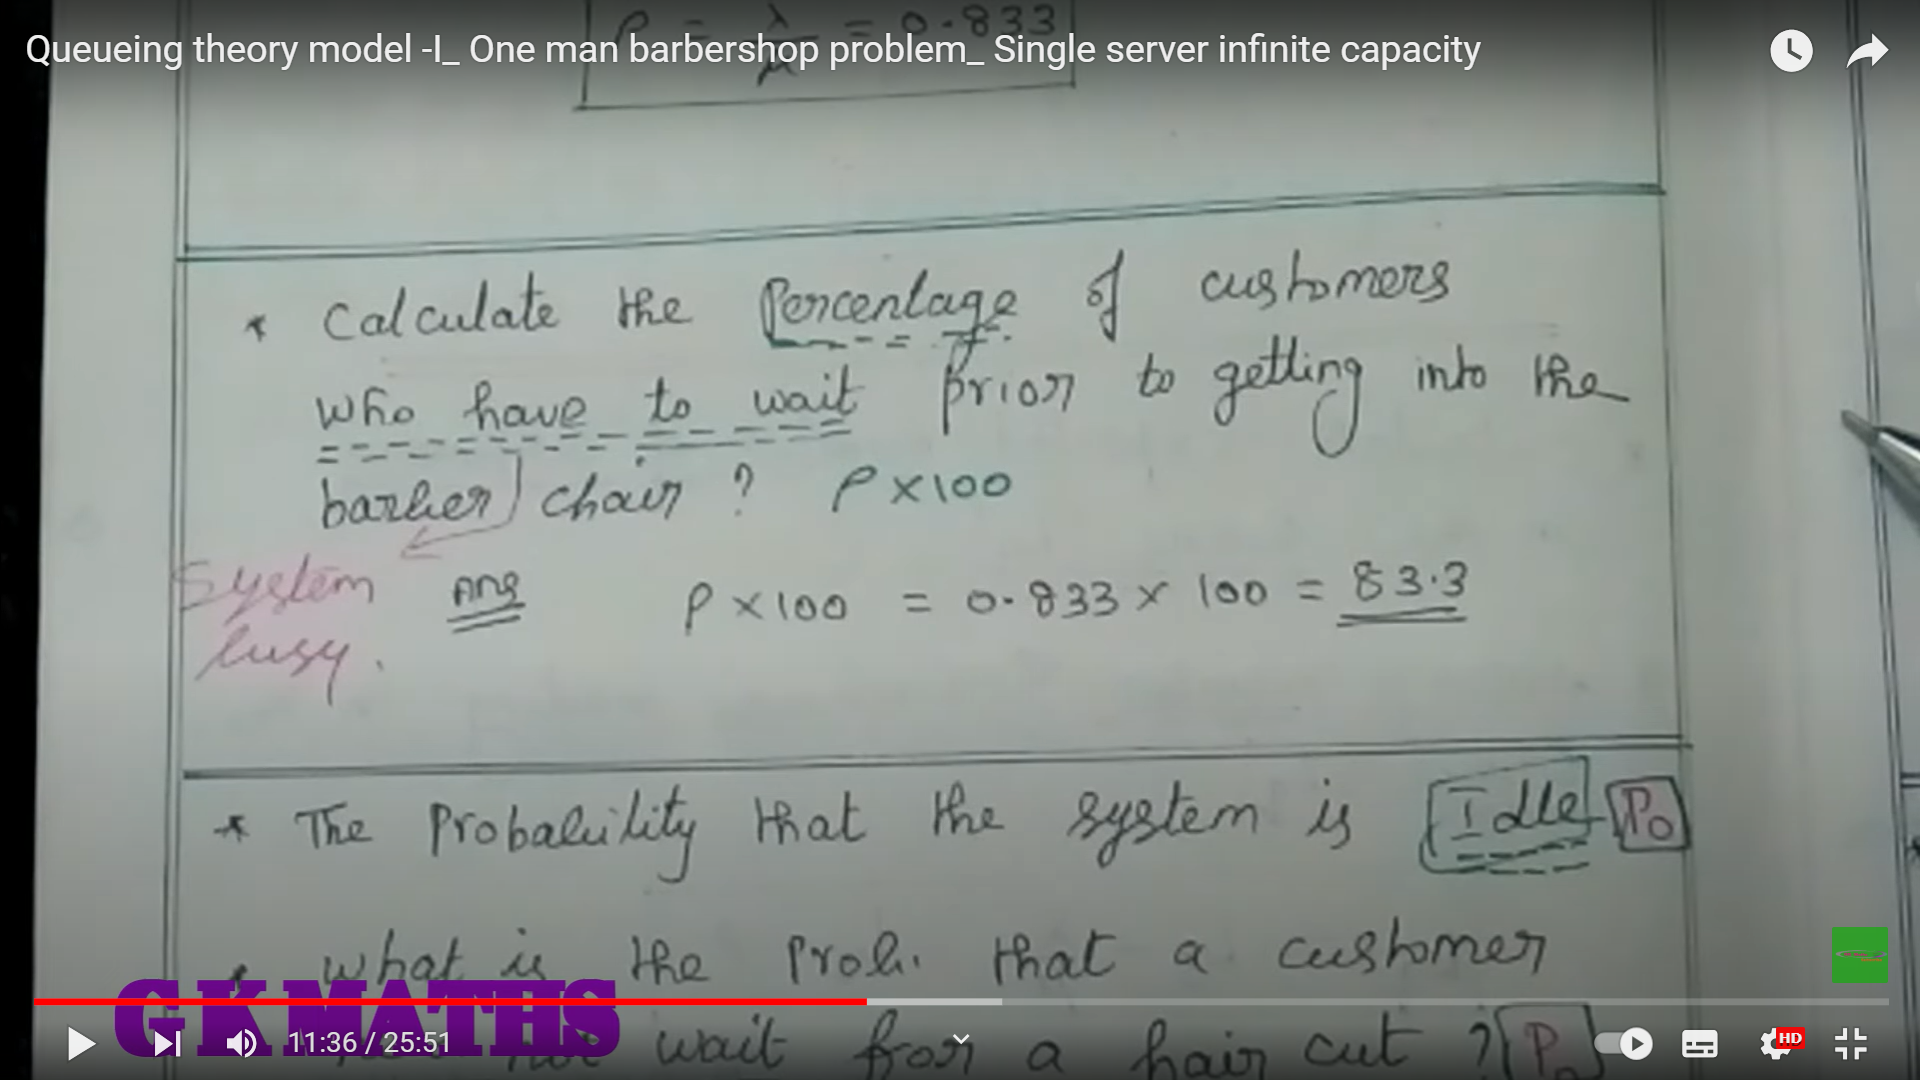 ρ = λ/μ = 0.833
Queueing theory model -I_ One man barbershop problem_ Single server infinite capacity
* Calculate the Percentage of customers
who have to wait prior to getting into the
barber chair ? ρ x 100
System
busy.
Ans ρ x 100 = 0.833 x 100 = 83.3
* The Probability that the system is Idle P0
* what is the Prob. that a customer
GK MATHS
not wait for a hair cut ? P0
11:36 / 25:51
HD